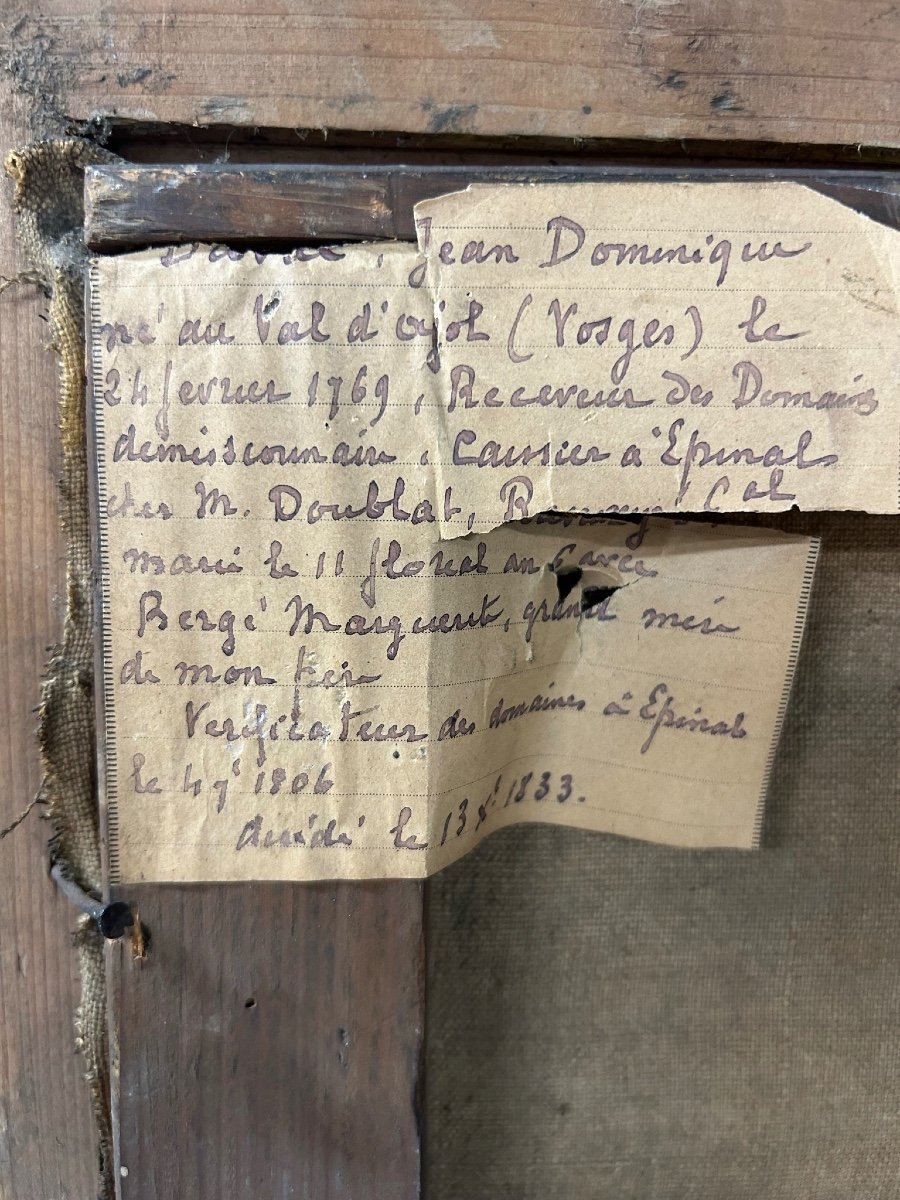 Jean Dominique
né au Val d'ajol (Vosges) le
24 fevrier 1769, Receveur des Domaines
demissionnaire, Caissier à Epinal
chez M. Doublat, Gal
marié le 11 floreal an 6 avec
Bergé Marguerite, grand mère
de mon père
Verificateur des domaines à Epinal
le 4 1806
décédé le 13 1833.